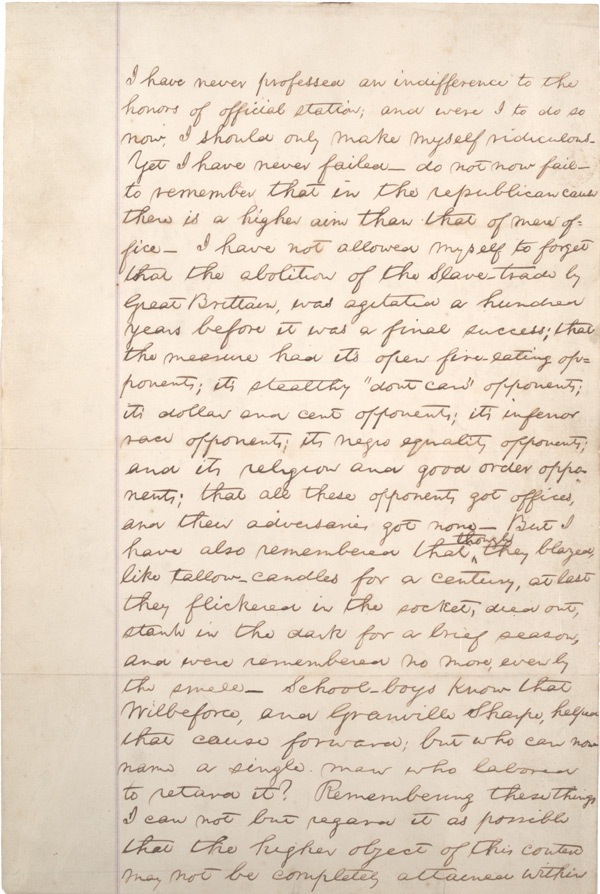 I have never professed an indifference to the
honors of official station; and were I to do so
now, I should only make myself ridiculous.
Yet I have never failed— do not now fail—
to remember that in the republican cause
there is a higher aim than that of mere of=
fice— I have not allowed myself to forget
that the abolition of the Slave-trade by
Great Brittain, was agitated a hundred
years before it was a final success; that
the measure had it's open fire-eating op=
ponents; it's stealthy "dont care" opponents;
it's dollar and cent opponents; it's inferior
race opponents; it's negro equality opponents;
and it's religion and good order oppo
nents; that all these opponents got offices,
and their adversaries got none— But I
have also remembered that though they blazed,
like tallow-candles for a century, at last
they flickered in the socket, died out,
stank in the dark for a brief season,
and were remembered no more, even by
the smell— School-boys know that
Wilbeforce, and Granville Sharpe, helped
that cause forward; but who can now
name a single man who labored
to retard it? Remembering these things
I can not but regard it as possible
that the higher object of this contest
may not be completely attained within